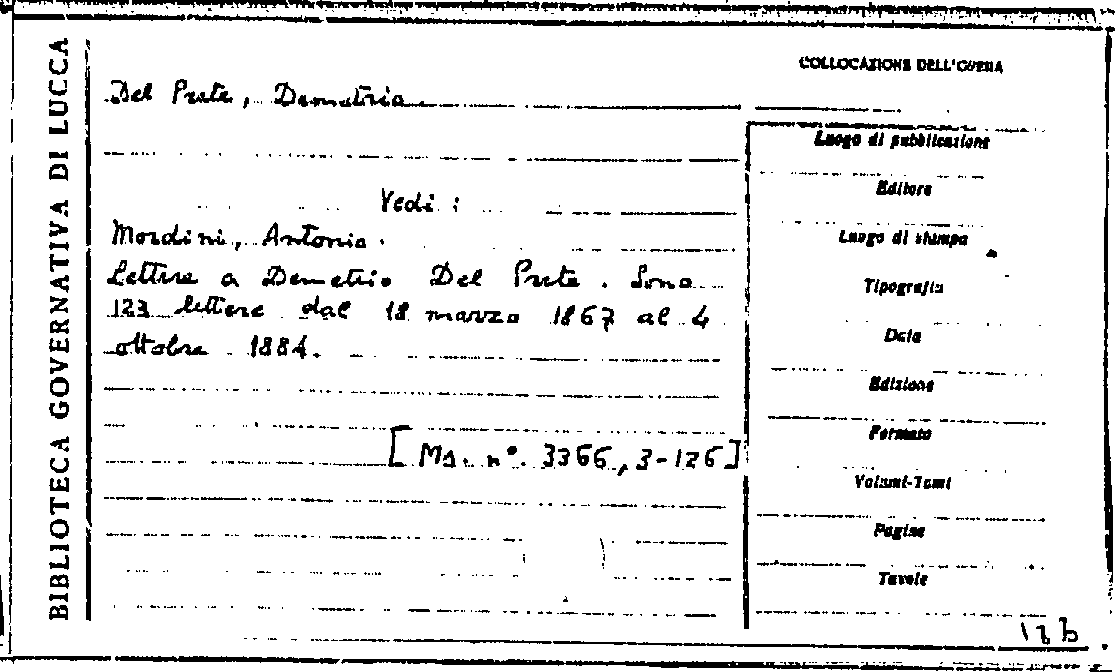 BIBLIOTECA GOVERNATIVA DI LUCCA
COLLOCAZIONE DELL'OPERA
Del Prete, Demetrio
Vedi :
Mordini, Antonio.
Lettere a Demetrio Del Prete. Sono
123 lettere dal 18 marzo 1867 al 4
ottobre 1884.
[Ms. n°. 3366, 3-126]
Luogo di pubblicazione
Editore
Luogo di stampa
Tipografia
Data
Edizione
Formato
Volumi-Tomi
Pagine
Tavole